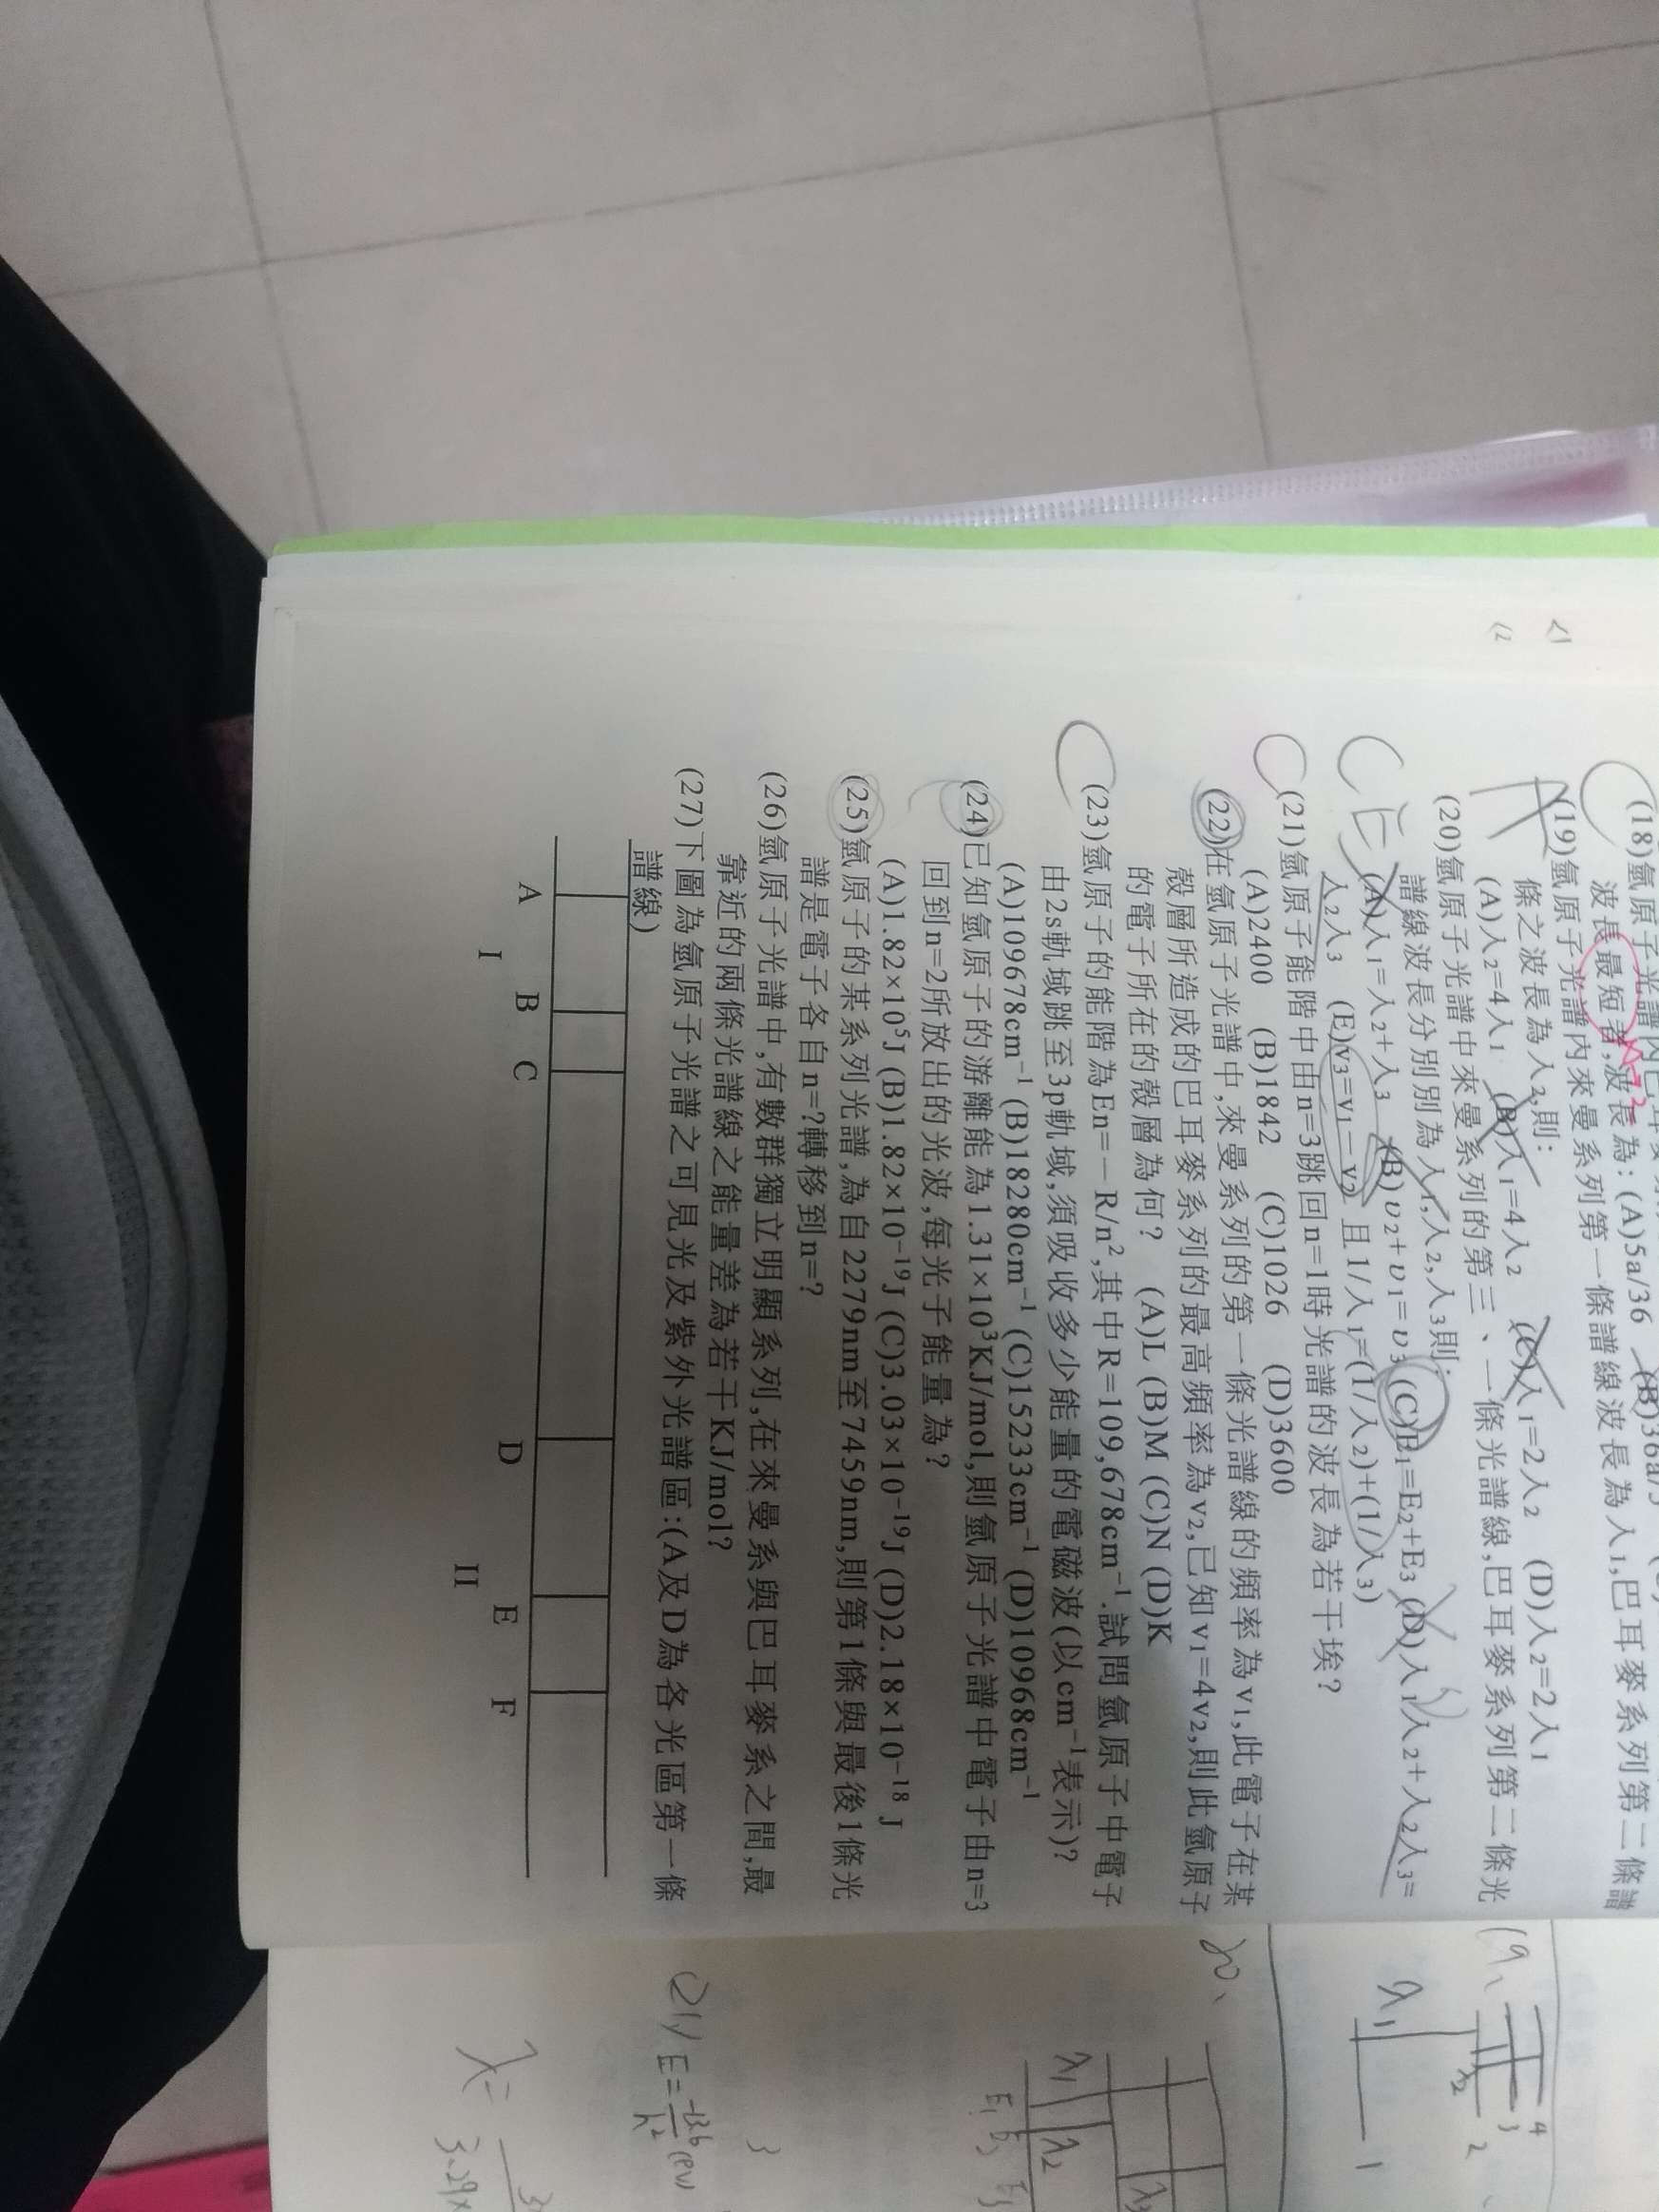 (18)氫原子光譜內巴耳麥系
波長最短者,波長為:(A)5a/36 (B)36a/5
(19)氫原子光譜內來曼系列第一條譜線波長為λ1,巴耳麥系列第二條譜
條之波長為λ2,則:
(A)λ2=4λ1 (B)λ1=4λ2 (C)λ1=2λ2 (D)λ2=2λ1
(20)氫原子光譜中來曼系列的第三、一條光譜線,巴耳麥系列第二條光
譜線波長分別別為λ1,λ2,λ3則:
(A)λ1=λ2+λ3 (B)υ2+υ1=υ3 (C)E1=E2+E3 (D)λ1λ2+λ2λ3=
λ2λ3 (E)v3=v1-v2 且1/λ1=(1/λ2)+(1/λ3)
(21)氫原子能階中由n=3跳回n=1時光譜的波長為若干埃?
(A)2400 (B)1842 (C)1026 (D)3600
(22)在氫原子光譜中,來曼系列的第一條光譜線的頻率為v1,此電子在某
殼層所造成的巴耳麥系列的最高頻率為v2,已知v1=4v2,則此氫原子
的電子所在的殼層為何? (A)L (B)M (C)N (D)K
(23)氫原子的能階為En=-R/n²,其中R=109,678cm⁻¹.試問氫原子中電子
由2s軌域跳至3p軌域,須吸收多少能量的電磁波(以cm⁻¹表示)?
(A)109678cm⁻¹ (B)18280cm⁻¹ (C)15233cm⁻¹ (D)10968cm⁻¹
(24)已知氫原子的游離能為1.31×10³KJ/mol,則氫原子光譜中電子由n=3
回到n=2所放出的光波,每光子能量為?
(A)1.82×10⁵J (B)1.82×10⁻¹⁹J (C)3.03×10⁻¹⁹J (D)2.18×10⁻¹⁸J
(25)氫原子的某系列光譜,為自2279nm至7459nm,則第1條與最後1條光
譜是電子各自n=?轉移到n=?
(26)氫原子光譜中,有數群獨立明顯系列,在來曼系與巴耳麥系之間,最
靠近的兩條光譜線之能量差為若干KJ/mol?
(27)下圖為氫原子光譜之可見光及紫外光譜區:(A及D為各光區第一條
譜線)
A B C D E F
I II
19、
4
3
2
λ1
λ2
1
20、
λ1 λ2 λ3
E1 E2 E3
21、E=-13.6/n²(eV)
3
λ=
3.29×